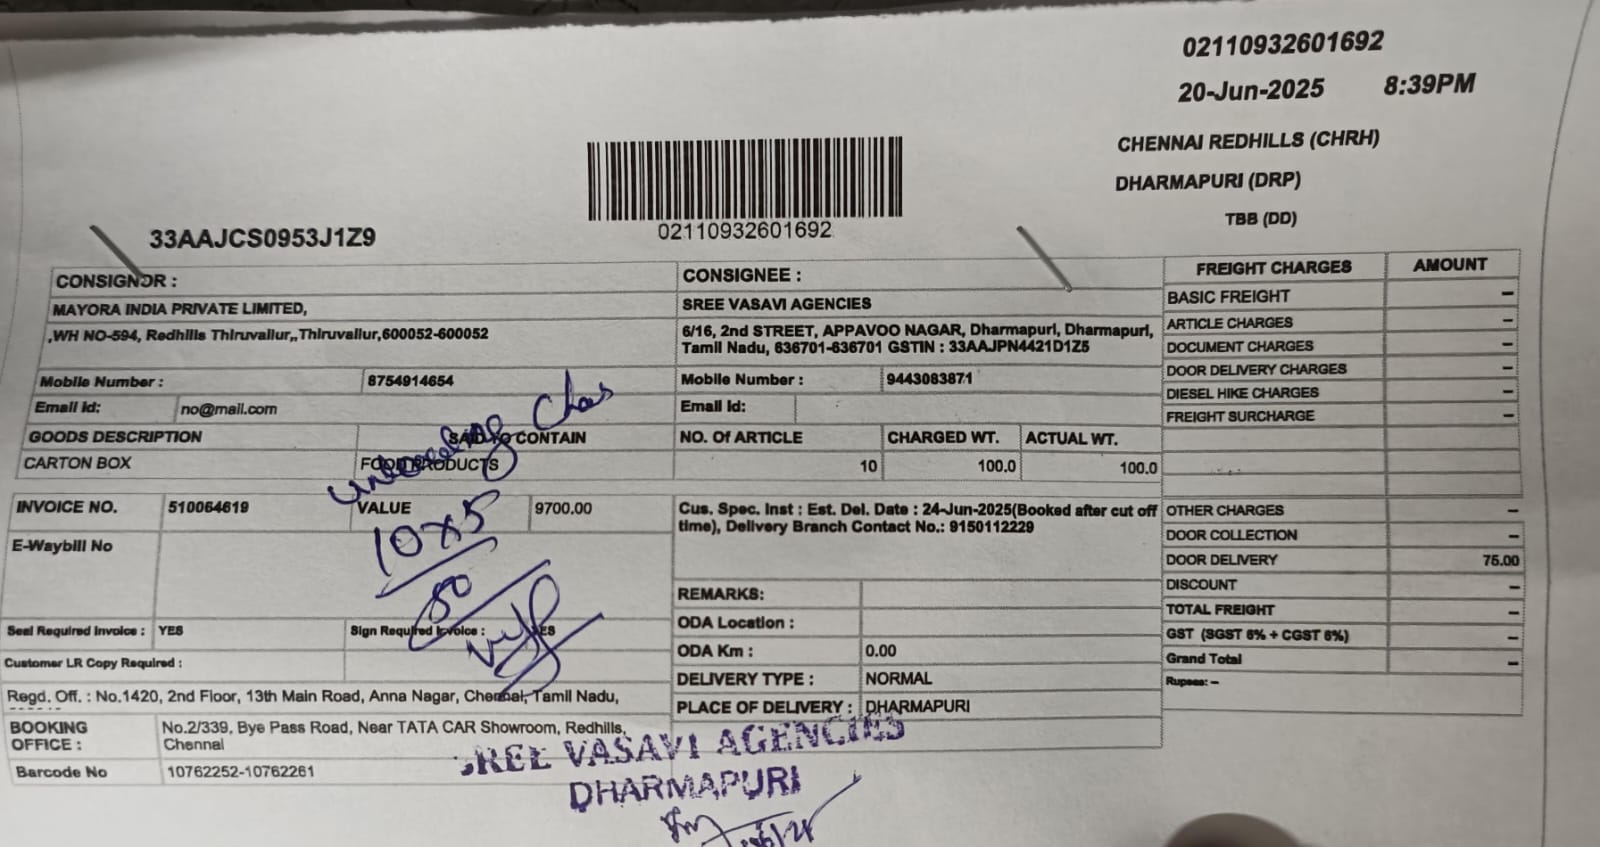 02110932601692
20-Jun-2025 8:39PM
CHENNAI REDHILLS (CHRH)
DHARMAPURI (DRP)
TBB (DD)
02110932601692
33AAJCS0953J1Z9
CONSIGNOR :
MAYORA INDIA PRIVATE LIMITED,
,WH NO-594, Redhills Thiruvallur,,Thiruvallur,600052-600052
Mobile Number : 8754914654
Email Id: no@mail.com
CONSIGNEE :
SREE VASAVI AGENCIES
6/16, 2nd STREET, APPAVOO NAGAR, Dharmapuri, Dharmapuri,
Tamil Nadu, 636701-636701 GSTIN : 33AAJPN4421D1Z5
Mobile Number : 9443083871
Email Id:
GOODS DESCRIPTION SAID TO CONTAIN NO. Of ARTICLE CHARGED WT. ACTUAL WT.
CARTON BOX FOOD PRODUCTS 10 100.0 100.0
unloading
10x5
50
INVOICE NO. 510064619 VALUE 9700.00
E-Waybill No
Seal Required Invoice : YES Sign Required Invoice : YES
Customer LR Copy Required :
Regd. Off. : No.1420, 2nd Floor, 13th Main Road, Anna Nagar, Chennai, Tamil Nadu,
BOOKING OFFICE : No.2/339, Bye Pass Road, Near TATA CAR Showroom, Redhills,
Chennai
Barcode No 10762252-10762261
Cus. Spec. Inst : Est. Del. Date : 24-Jun-2025(Booked after cut off
time), Delivery Branch Contact No.: 9150112229
REMARKS:
ODA Location :
ODA Km : 0.00
DELIVERY TYPE : NORMAL
PLACE OF DELIVERY : DHARMAPURI
FREIGHT CHARGES AMOUNT
BASIC FREIGHT –
ARTICLE CHARGES –
DOCUMENT CHARGES –
DOOR DELIVERY CHARGES –
DIESEL HIKE CHARGES –
FREIGHT SURCHARGE –
OTHER CHARGES –
DOOR COLLECTION –
DOOR DELIVERY 75.00
DISCOUNT –
TOTAL FREIGHT –
GST (SGST 6% + CGST 6%) –
Grand Total –
Rupees: –
SREE VASAVI AGENCIES
DHARMAPURI